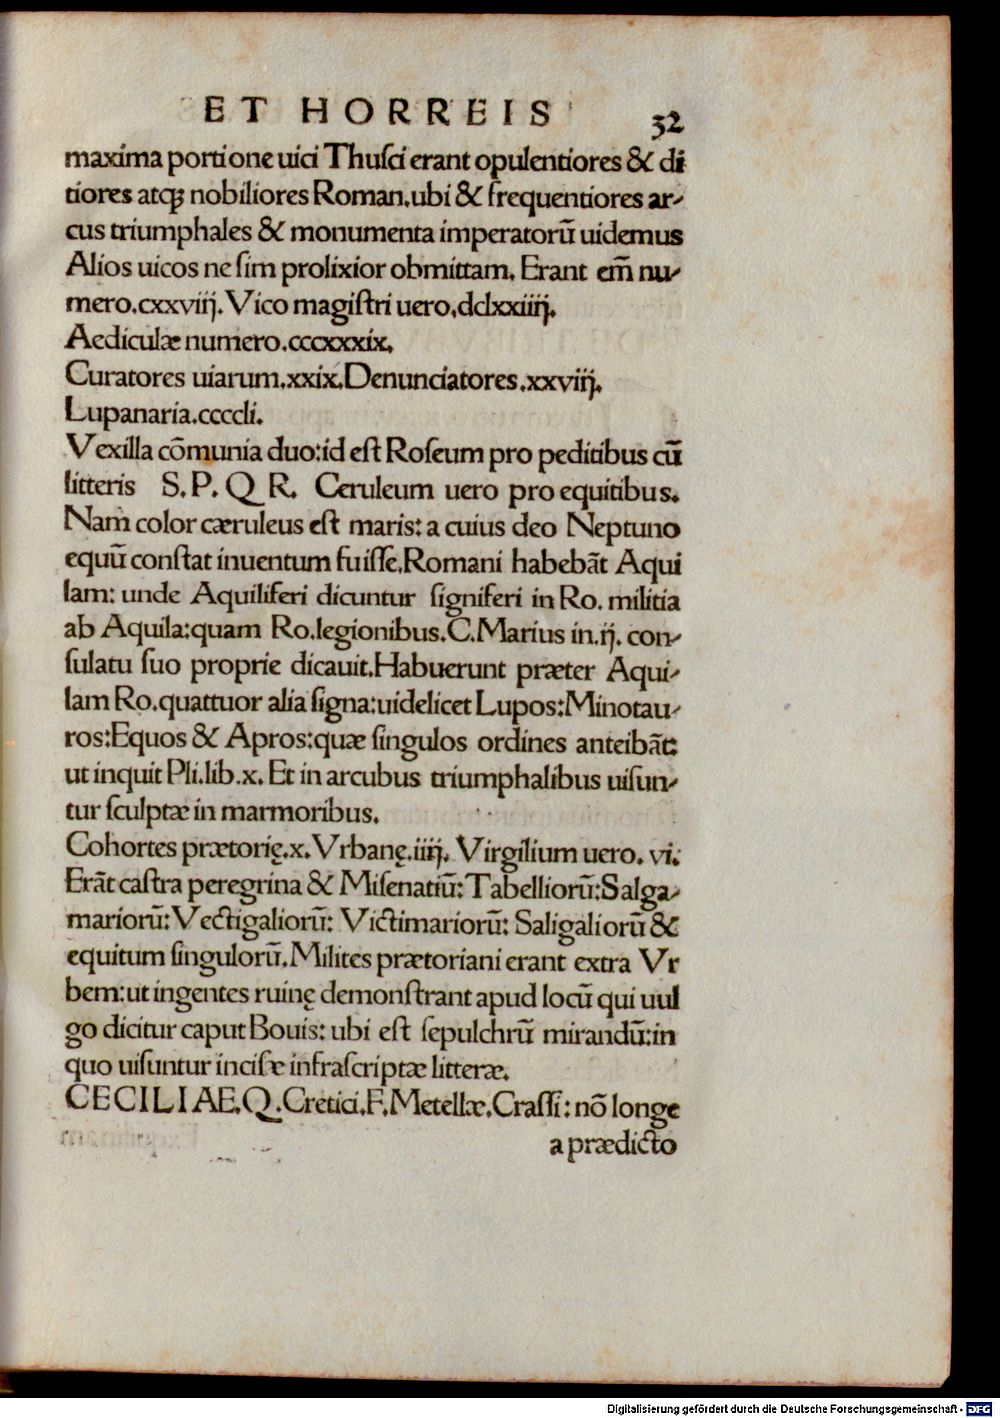 ET HORREIS 32
maxima portione uici Thuſci erant opulentiores & di
tiores atqꝫ nobiliores Roman.ubi & frequentiores ar-
cus triumphales & monumenta imperatorū uidemus
Alios uicos ne ſim prolixior obmittam. Erant em̄ nu-
mero.cxxviij. Vico magiſtri uero.dclxxiiij.
Aediculæ numero.cccxxxix.
Curatores uiarum.xxix.Denunciatores.xxviij.
Lupanaria.ccccli.
Vexilla cōmunia duo:id eſt Roſeum pro peditibus cū
litteris S.P.Q R. Ceruleum uero pro equitibus.
Nam color cæruleus eſt maris: a cuius deo Neptuno
equū conſtat inuentum fuiſſe.Romani habebāt Aqui
lam: unde Aquiliferi dicuntur ſigniferi in Ro. militia
ab Aquila:quam Ro.legionibus.C.Marius in.ij. con-
ſulatu ſuo proprie dicauit.Habuerunt præter Aqui-
lam Ro.quattuor alia ſigna:uidelicet Lupos:Minotau-
ros:Equos & Apros:quæ ſingulos ordines anteibāt:
ut inquit Pli.lib.x. Et in arcubus triumphalibus uiſun-
tur ſculptæ in marmoribus.
Cohortes prætorię.x.Vrbanę.iiij. Virgilium uero. vi.
Erāt caſtra peregrina & Miſenatiū:Tabelliorū:Salga-
mariorū:Vectigaliorū: Victimariorū: Saligaliorū &
equitum ſingulorū.Milites prætoriani erant extra Vr
bem:ut ingentes ruinę demonſtrant apud locū qui uul
go dicitur caput Bouis: ubi eſt ſepulchrū mirandū:in
quo uiſuntur inciſæ infraſcriptæ litteræ.
CECILIAE.Q.Cretici.F.Metellæ.Craſſi: nō longe
a prædicto
Digitalisierung gefördert durch die Deutsche Forschungsgemeinschaft - DFG